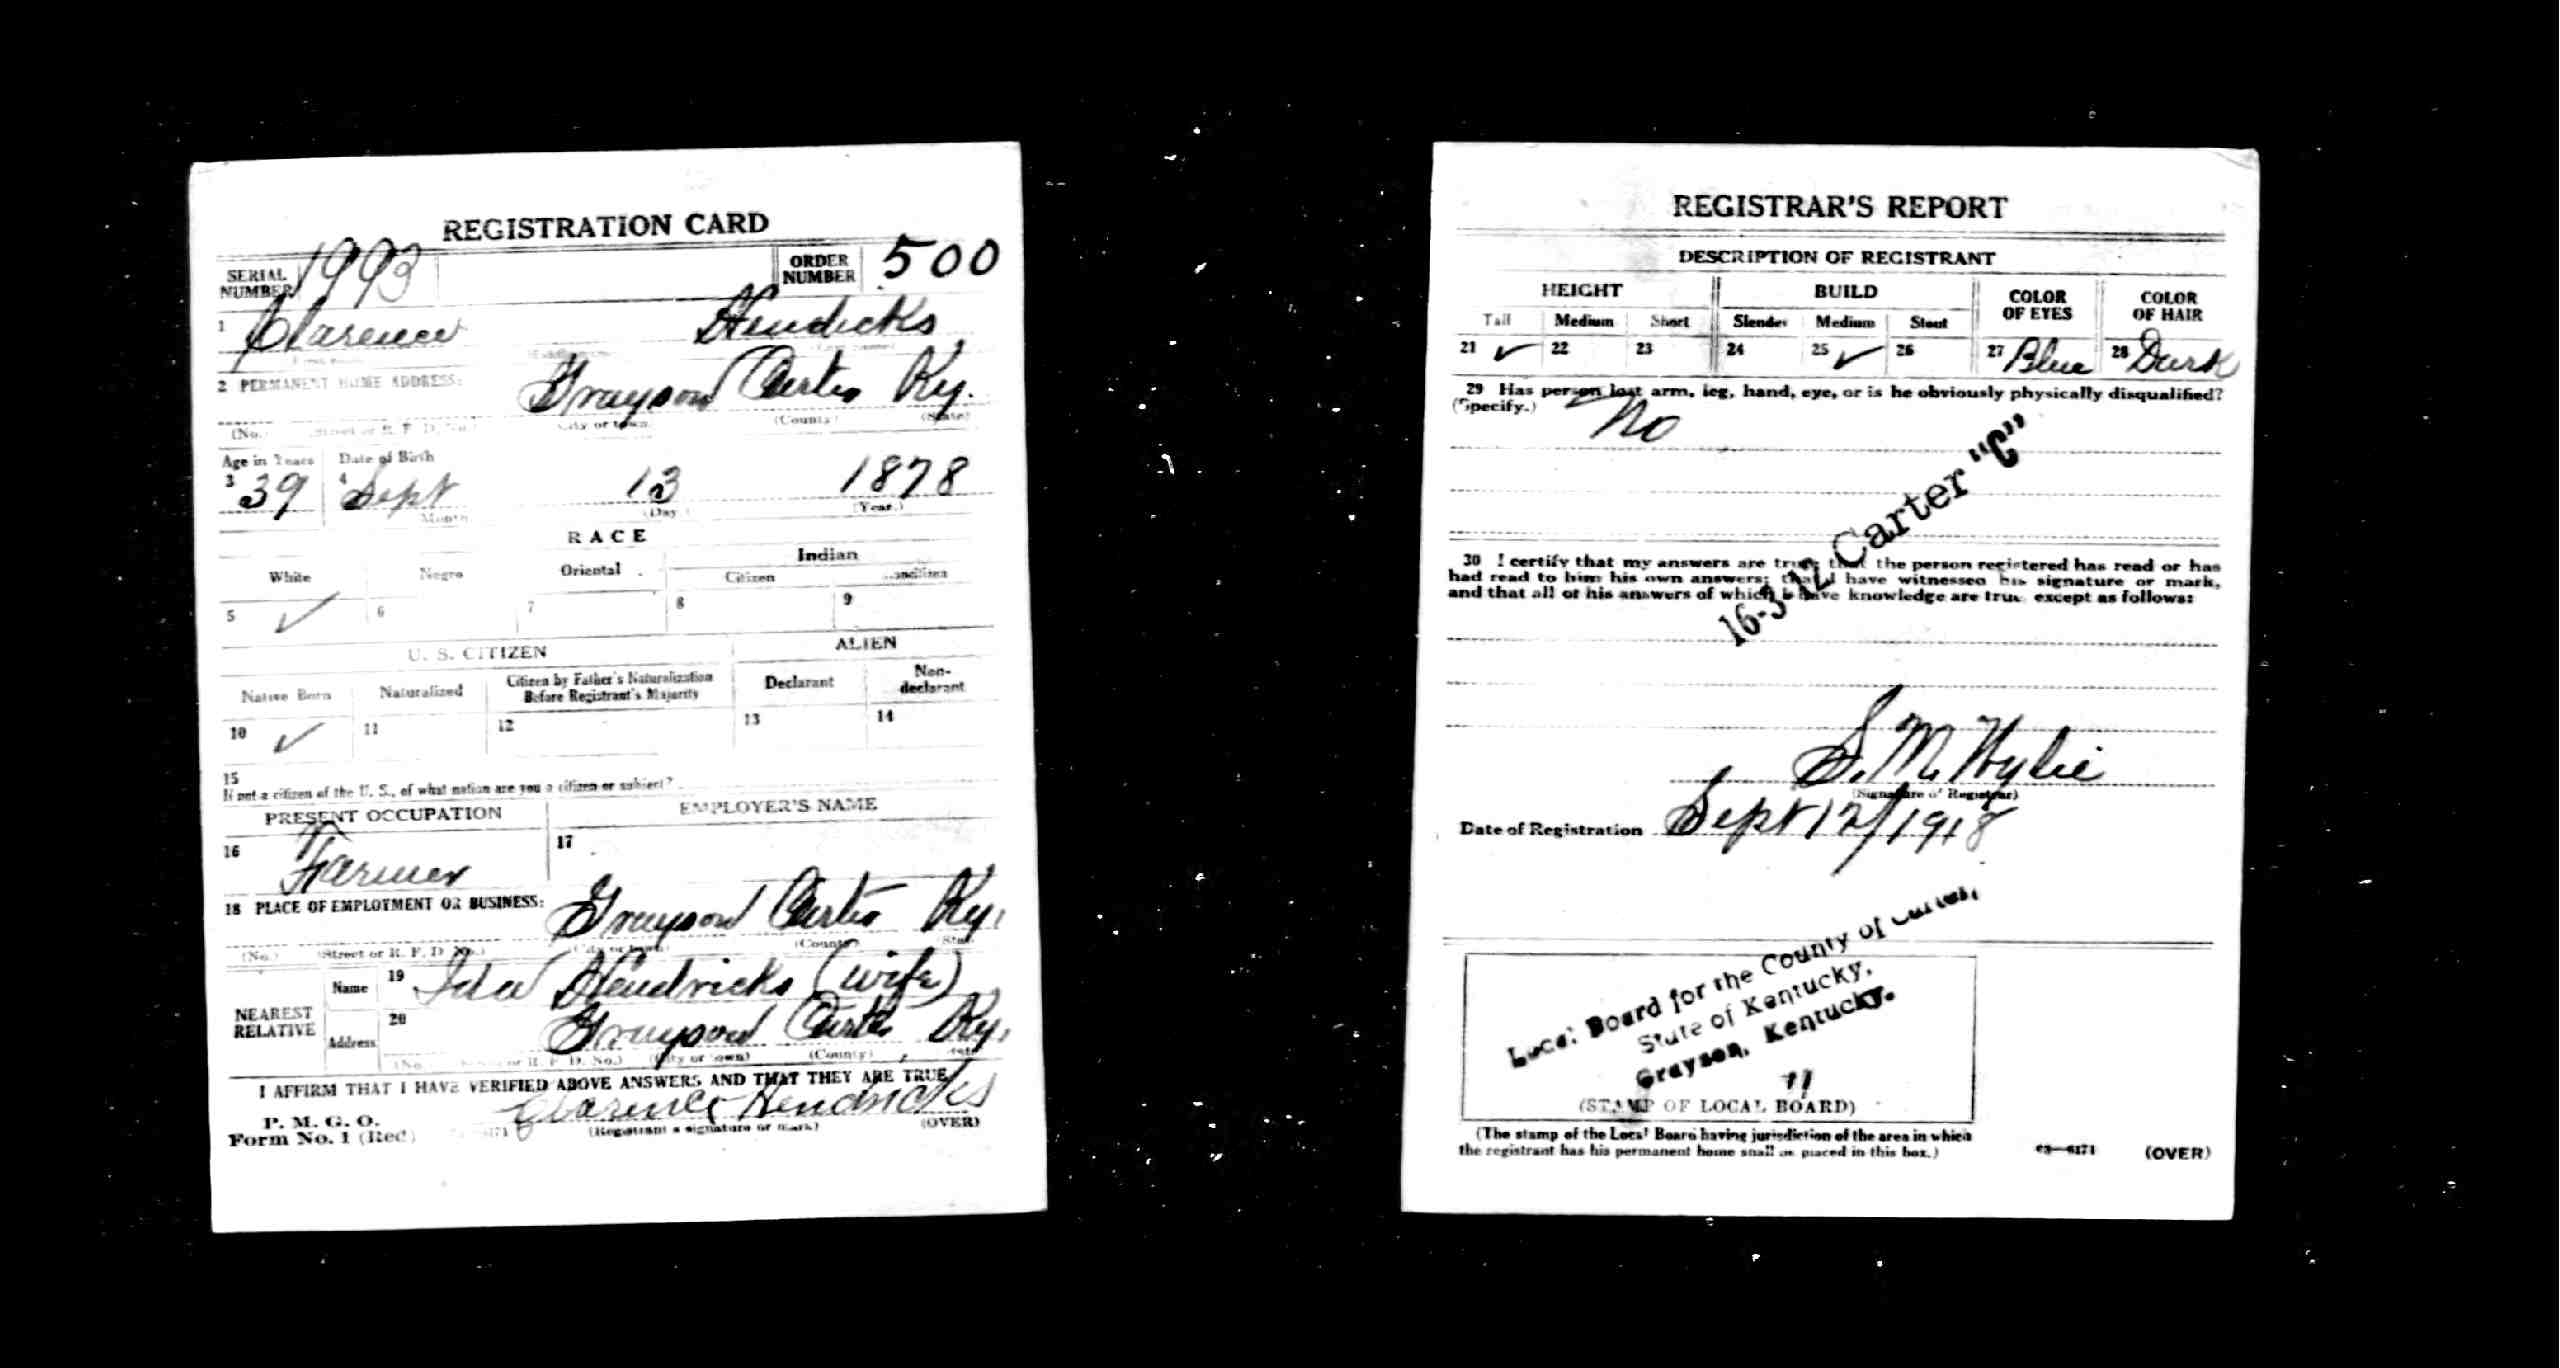 REGISTRATION CARD
SERIAL NUMBER 1993 ORDER NUMBER 500
1 Clarence Hendicks
2 PERMANENT HOME ADDRESS: Grayson Carter Ky.
(No.) (Street or R. F. D. No.) (City or town) (County) (State)
Age in Years Date of Birth
3 39 4 Sept 13 1878
Month (Day.) (Year.)
RACE
White Negro Oriental Indian
Citizen Noncitizen
5 ✓ 6 7 8 9
U. S. CITIZEN ALIEN
Native Born Naturalized Citizen by Father's Naturalization Before Registrant's Majority Declarant Non-declarant
10 ✓ 11 12 13 14
15
If not a citizen of the U. S., of what nation are you a citizen or subject?
PRESENT OCCUPATION EMPLOYER'S NAME
16 Farmer 17
18 PLACE OF EMPLOYMENT OR BUSINESS: Grayson Carter Ky.
(No.) (Street or R. F. D No.) (City or town) (County) State
NEAREST RELATIVE Name 19 Ida Hendricks (wife)
Address 20 Grayson Carter Ky.
(No. (Street or R. F. D. No.) (City or town) (County) State
I AFFIRM THAT I HAVE VERIFIED ABOVE ANSWERS AND THAT THEY ARE TRUE
P. M. G. O.
Form No. 1 (Red) Clarence Hendricks
(Registrant's signature or mark) (OVER)
REGISTRAR'S REPORT
DESCRIPTION OF REGISTRANT
HEIGHT BUILD COLOR OF EYES COLOR OF HAIR
Tall Medium Short Slender Medium Stout
21 ✓ 22 23 24 25 ✓ 26 27 Blue 28 Dark
29 Has person lost arm, leg, hand, eye, or is he obviously physically disqualified?
(Specify.) No
16-3-12 Carter "C"
30 I certify that my answers are true; that the person registered has read or has
had read to him his own answers; that I have witnessed his signature or mark,
and that all of his answers of which I have knowledge are true, except as follows:
S. M. Wylie
(Signature of Registrar)
Date of Registration Sept 12/1918
Local Board for the County of Carter,
State of Kentucky,
Grayson, Kentucky.
(STAMP OF LOCAL BOARD)
(The stamp of the Local Board having jurisdiction of the area in which
the registrant has his permanent home shall be placed in this box.)
03—6171 (OVER)